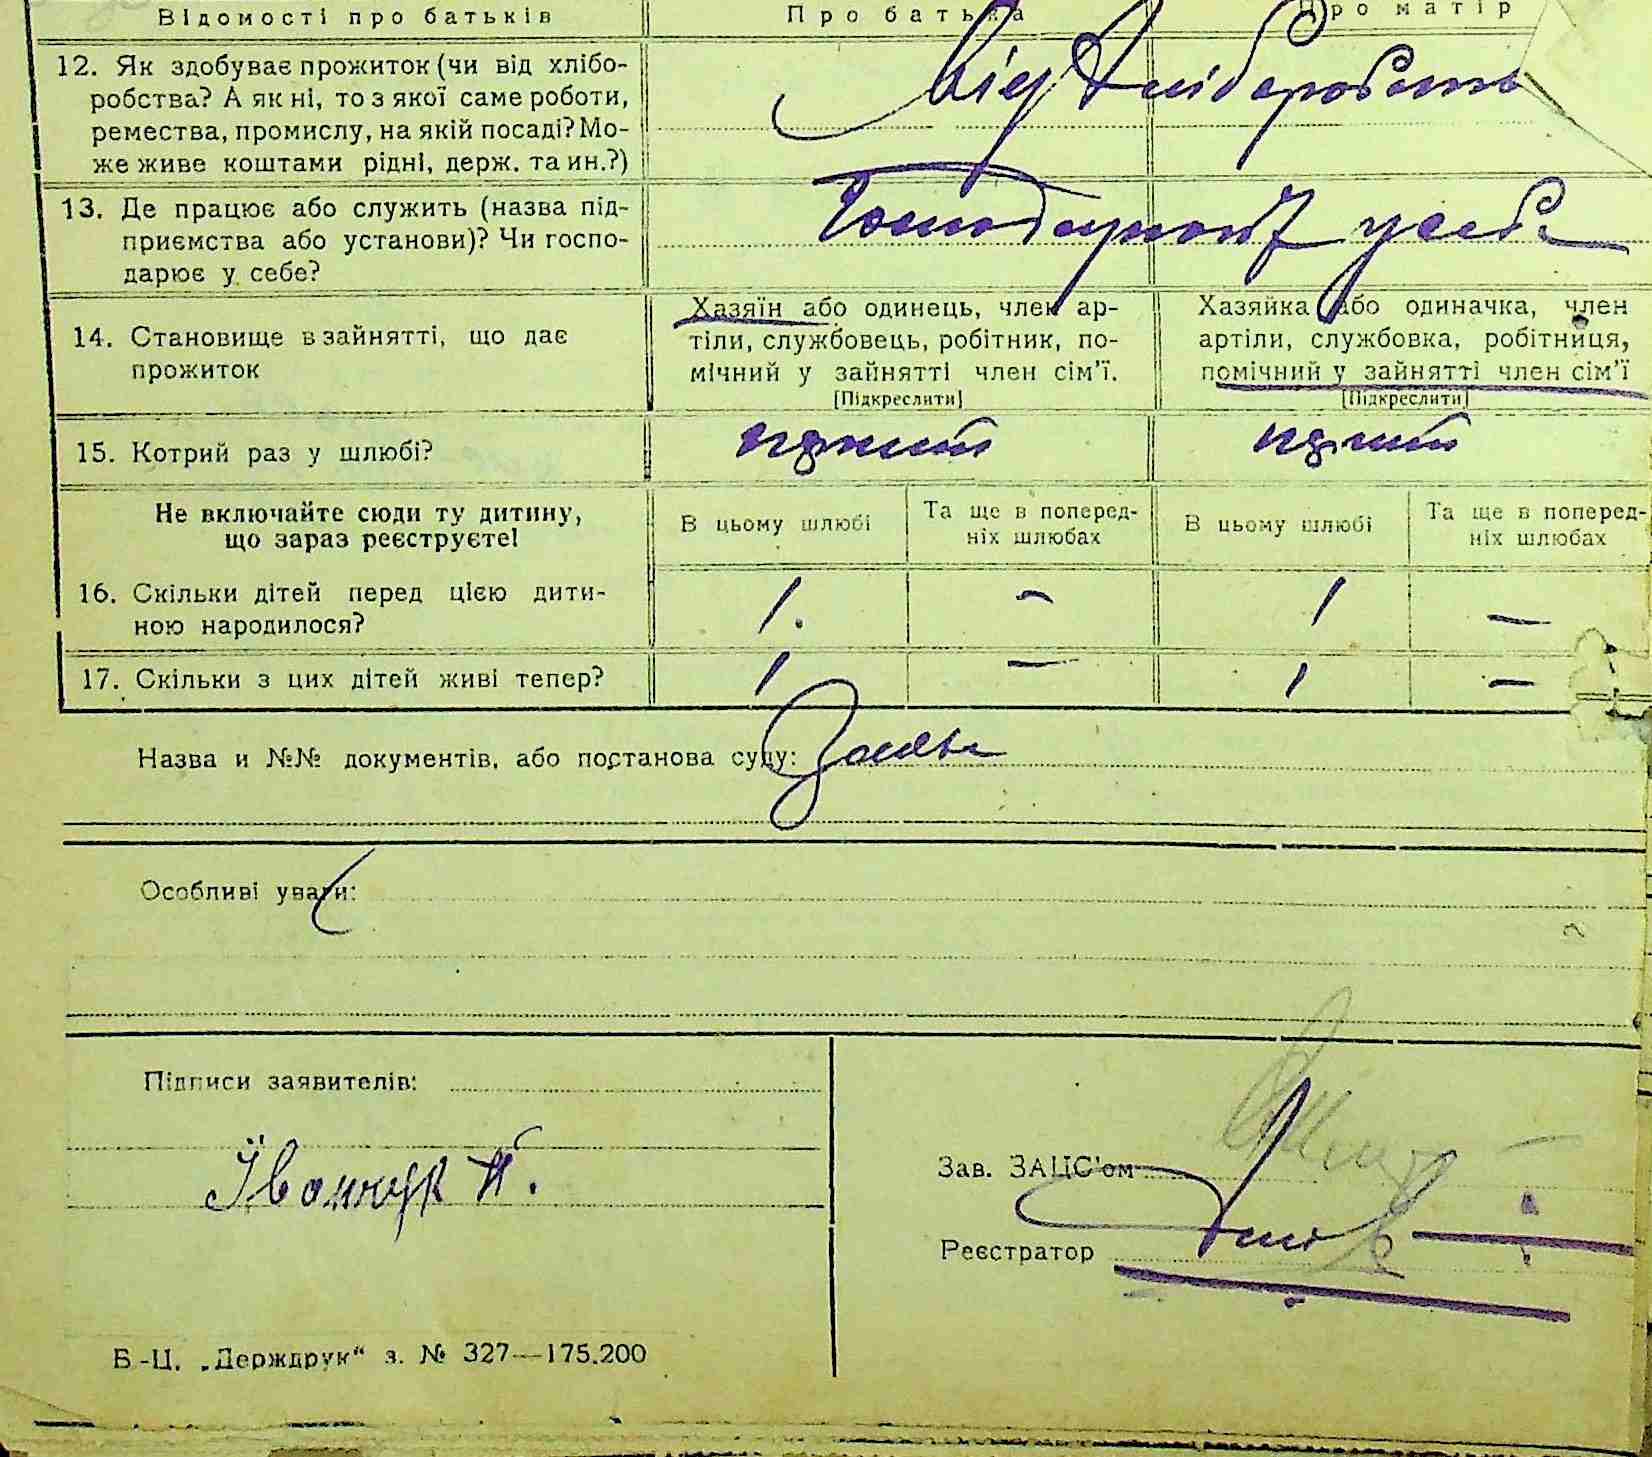 Відомості про батьків Про батька Про матір
12. Як здобуває прожиток (чи від хлібо-
робства? А як ні, то з якої саме роботи,
ремества, промислу, на якій посаді? Мо-
же живе коштами рідні, держ. та ин.?)
від хліборобства
13. Де працює або служить (назва під-
приємства або установи)? Чи госпо-
дарює у себе?
Господарює у себе
14. Становище в зайнятті, що дає
прожиток
Хазяїн або одинець, член ар-
тіли, службовець, робітник, по-
мічний у зайнятті член сім'ї.
[Підкреслити]
Хазяйка або одиначка, член
артіли, службовка, робітниця,
помічний у зайнятті член сім'ї
[Підкреслити]
15. Котрий раз у шлюбі?
Не включайте сюди ту дитину,
що зараз реєструєте!
В цьому шлюбі
Та ще в поперед-
ніх шлюбах
В цьому шлюбі
Та ще в поперед-
ніх шлюбах
16. Скільки дітей перед цією дити-
ною народилося?
1. – 1 –
17. Скільки з цих дітей живі тепер? 1 – 1 –
Назва и №№ документів, або постанова суду: Заява
Особливі уваги:
Підписи заявителів:
Іванчук П.
Зав. ЗАЦС'ом
Реєстратор
Б-Ц. „Держдрук" з. № 327—175.200